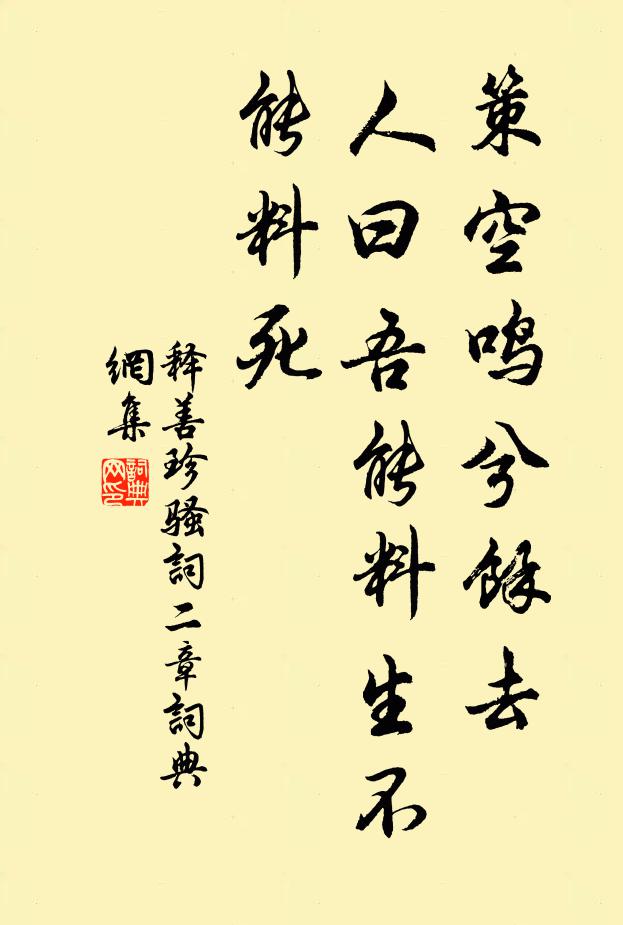 策空鸣兮餘去
人曰吾能料生不
能料死
释善珍骚詞二章詞典
網集
詞典网印